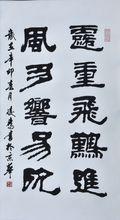 露重飛難進
風多響易沈
辛卯 月 書於京華